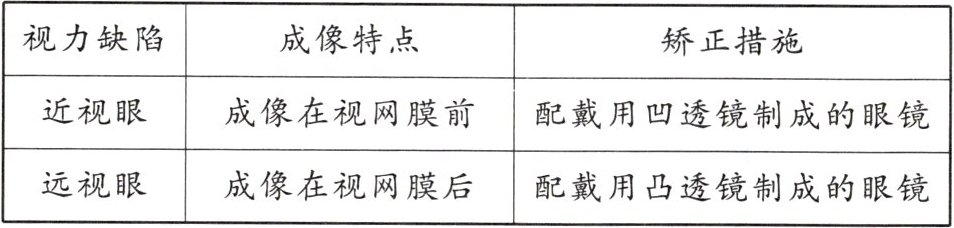 视力缺陷 成像特点 矫正措施
近视眼 成像在视网膜前 配戴用凹透镜制成的眼镜
远视眼 成像在视网膜后 配戴用凸透镜制成的眼镜